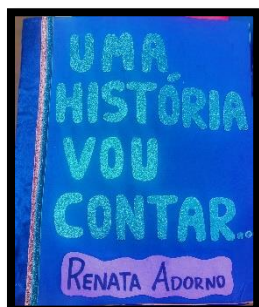 UMA
HISTÓRIA
VOU
CONTAR...
RENATA ADORNO